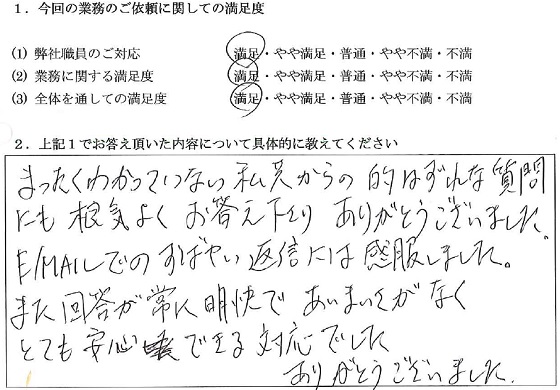 1．今回の業務のご依頼に関しての満足度
(1) 弊社職員のご対応 満足・やや満足・普通・やや不満・不満
(2) 業務に関する満足度 満足・やや満足・普通・やや不満・不満
(3) 全体を通しての満足度 満足・やや満足・普通・やや不満・不満
2．上記1でお答え頂いた内容について具体的に教えてください
まったくわかっていない私共からの的はずれな質問
にも根気よくお答え下さり ありがとうございました。
E/MAILでのすばやい返信には感服しました。
また回答が常に明快で あいまいさがなく
とても安心できる対応でした
ありがとうございました。